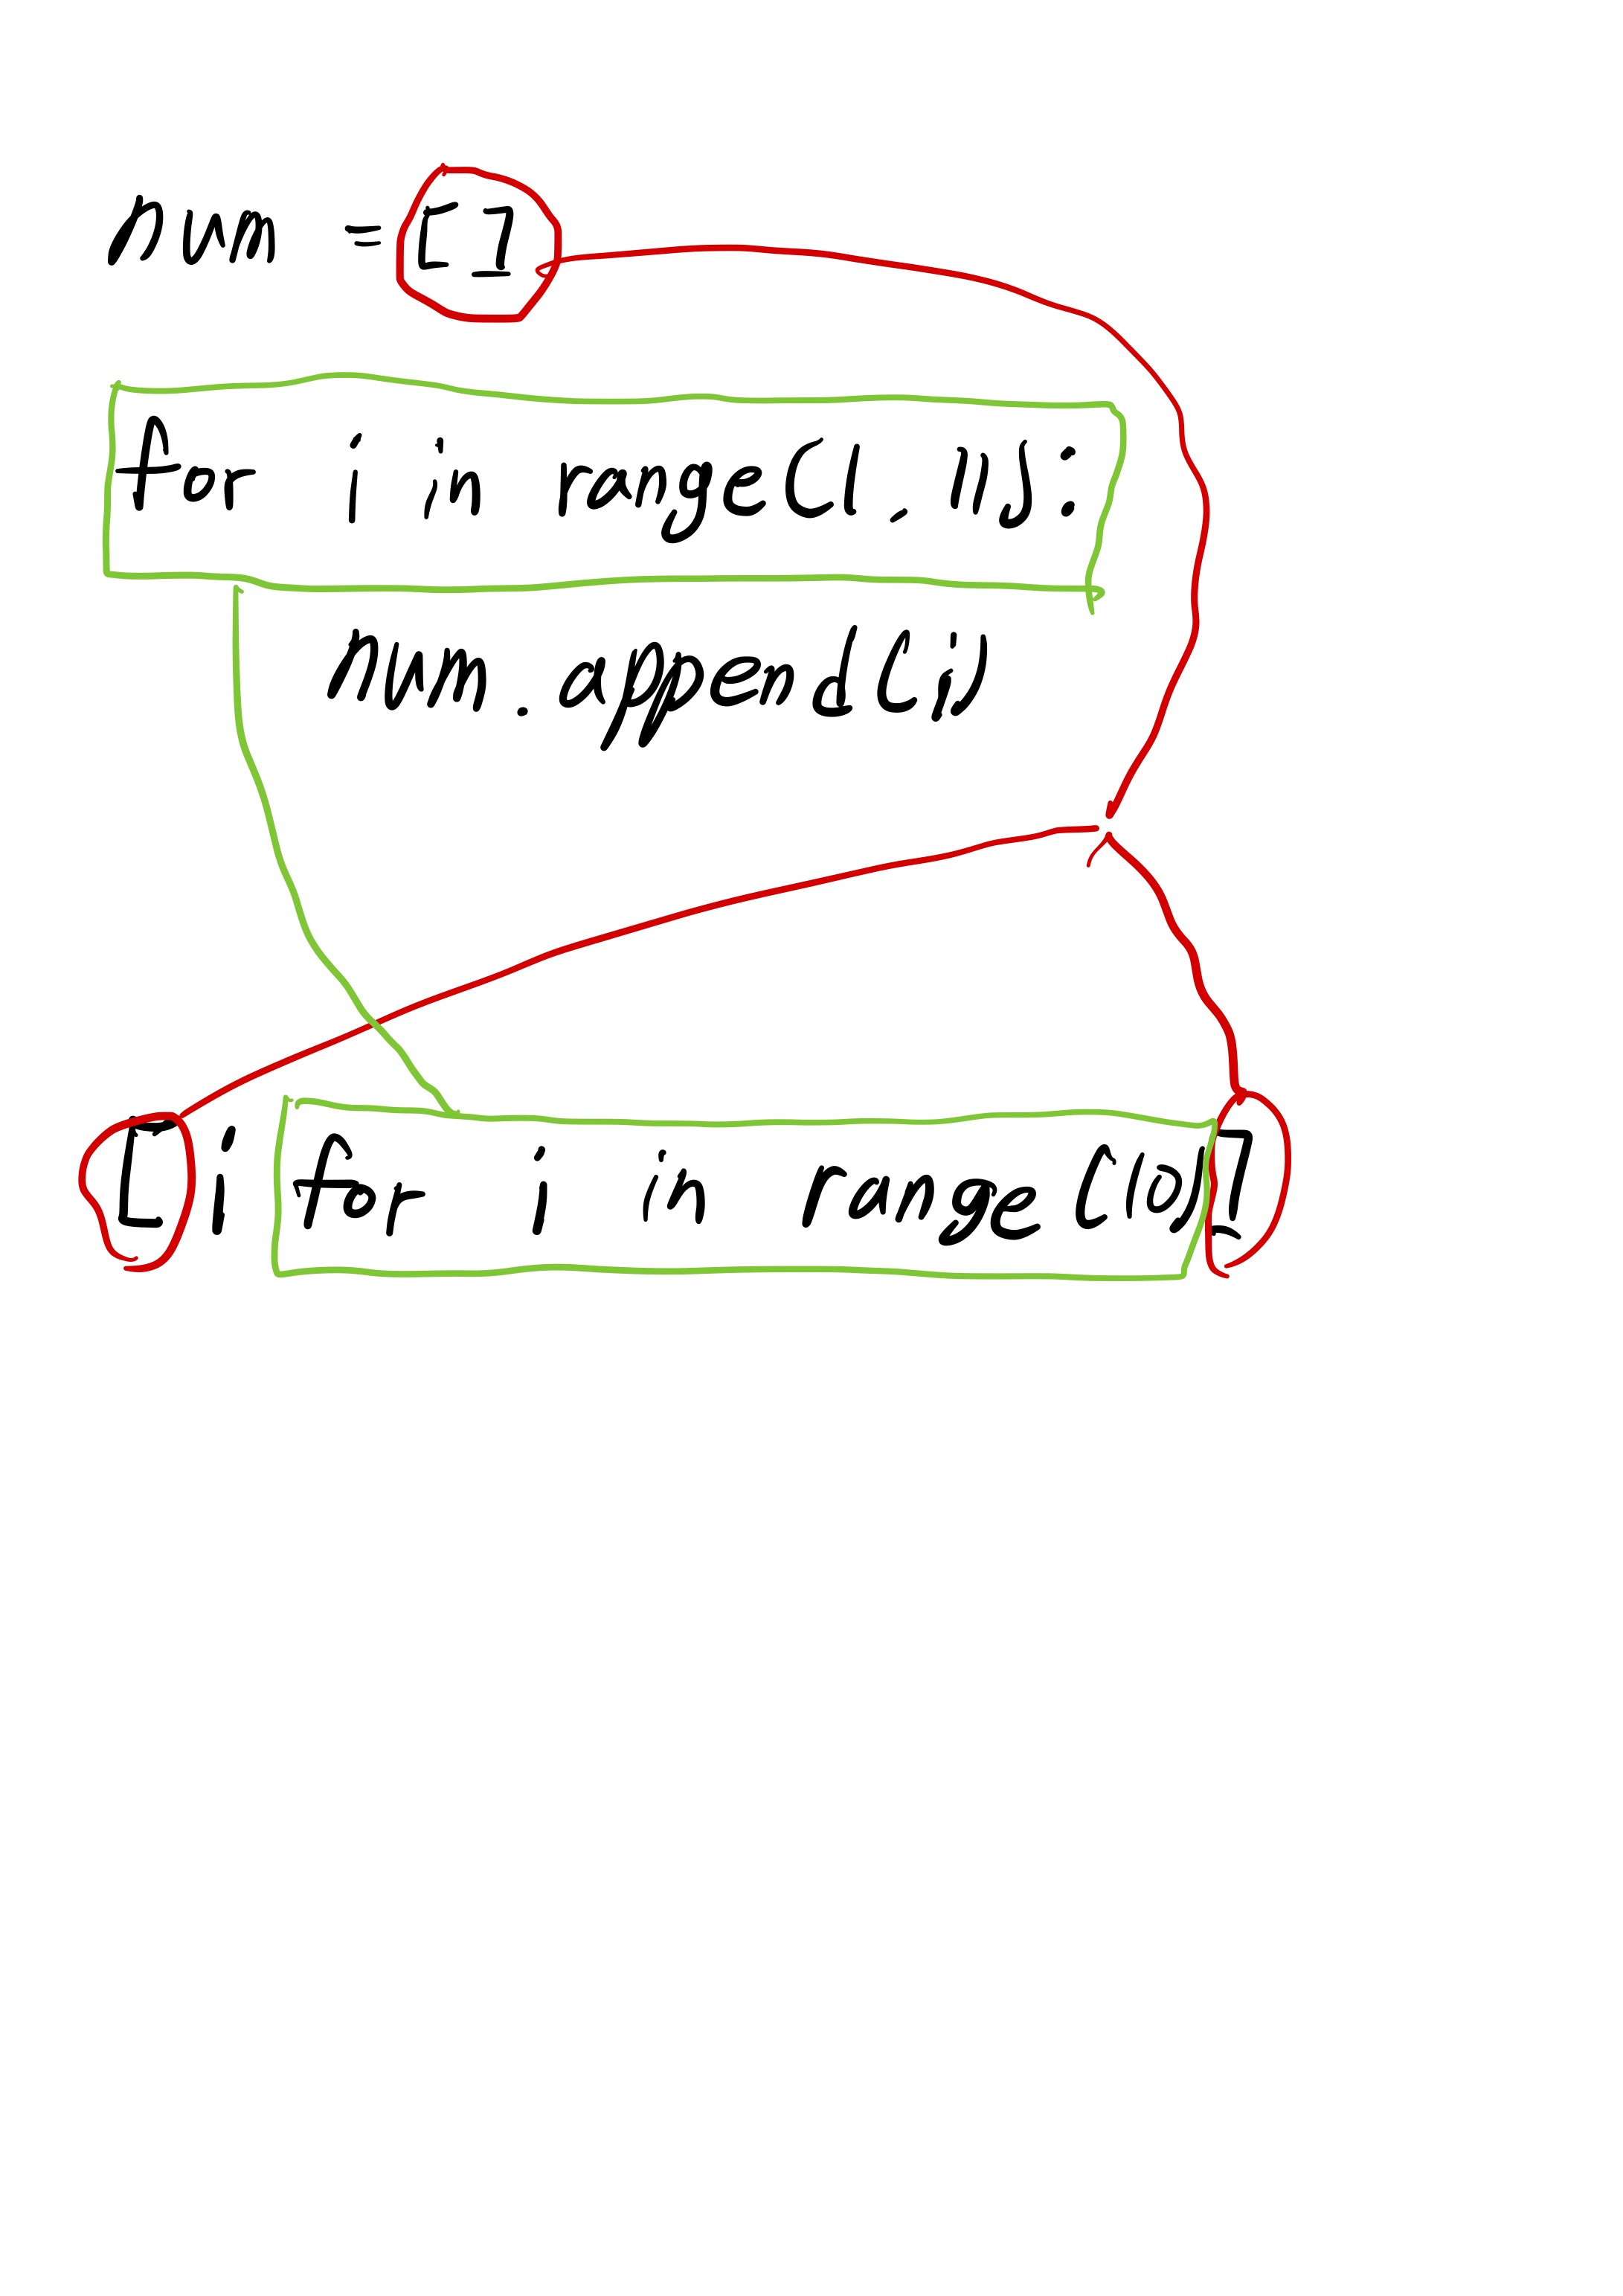 num = []
for i in range(1, 11):
num.append(i)
[i for i in range(10)]